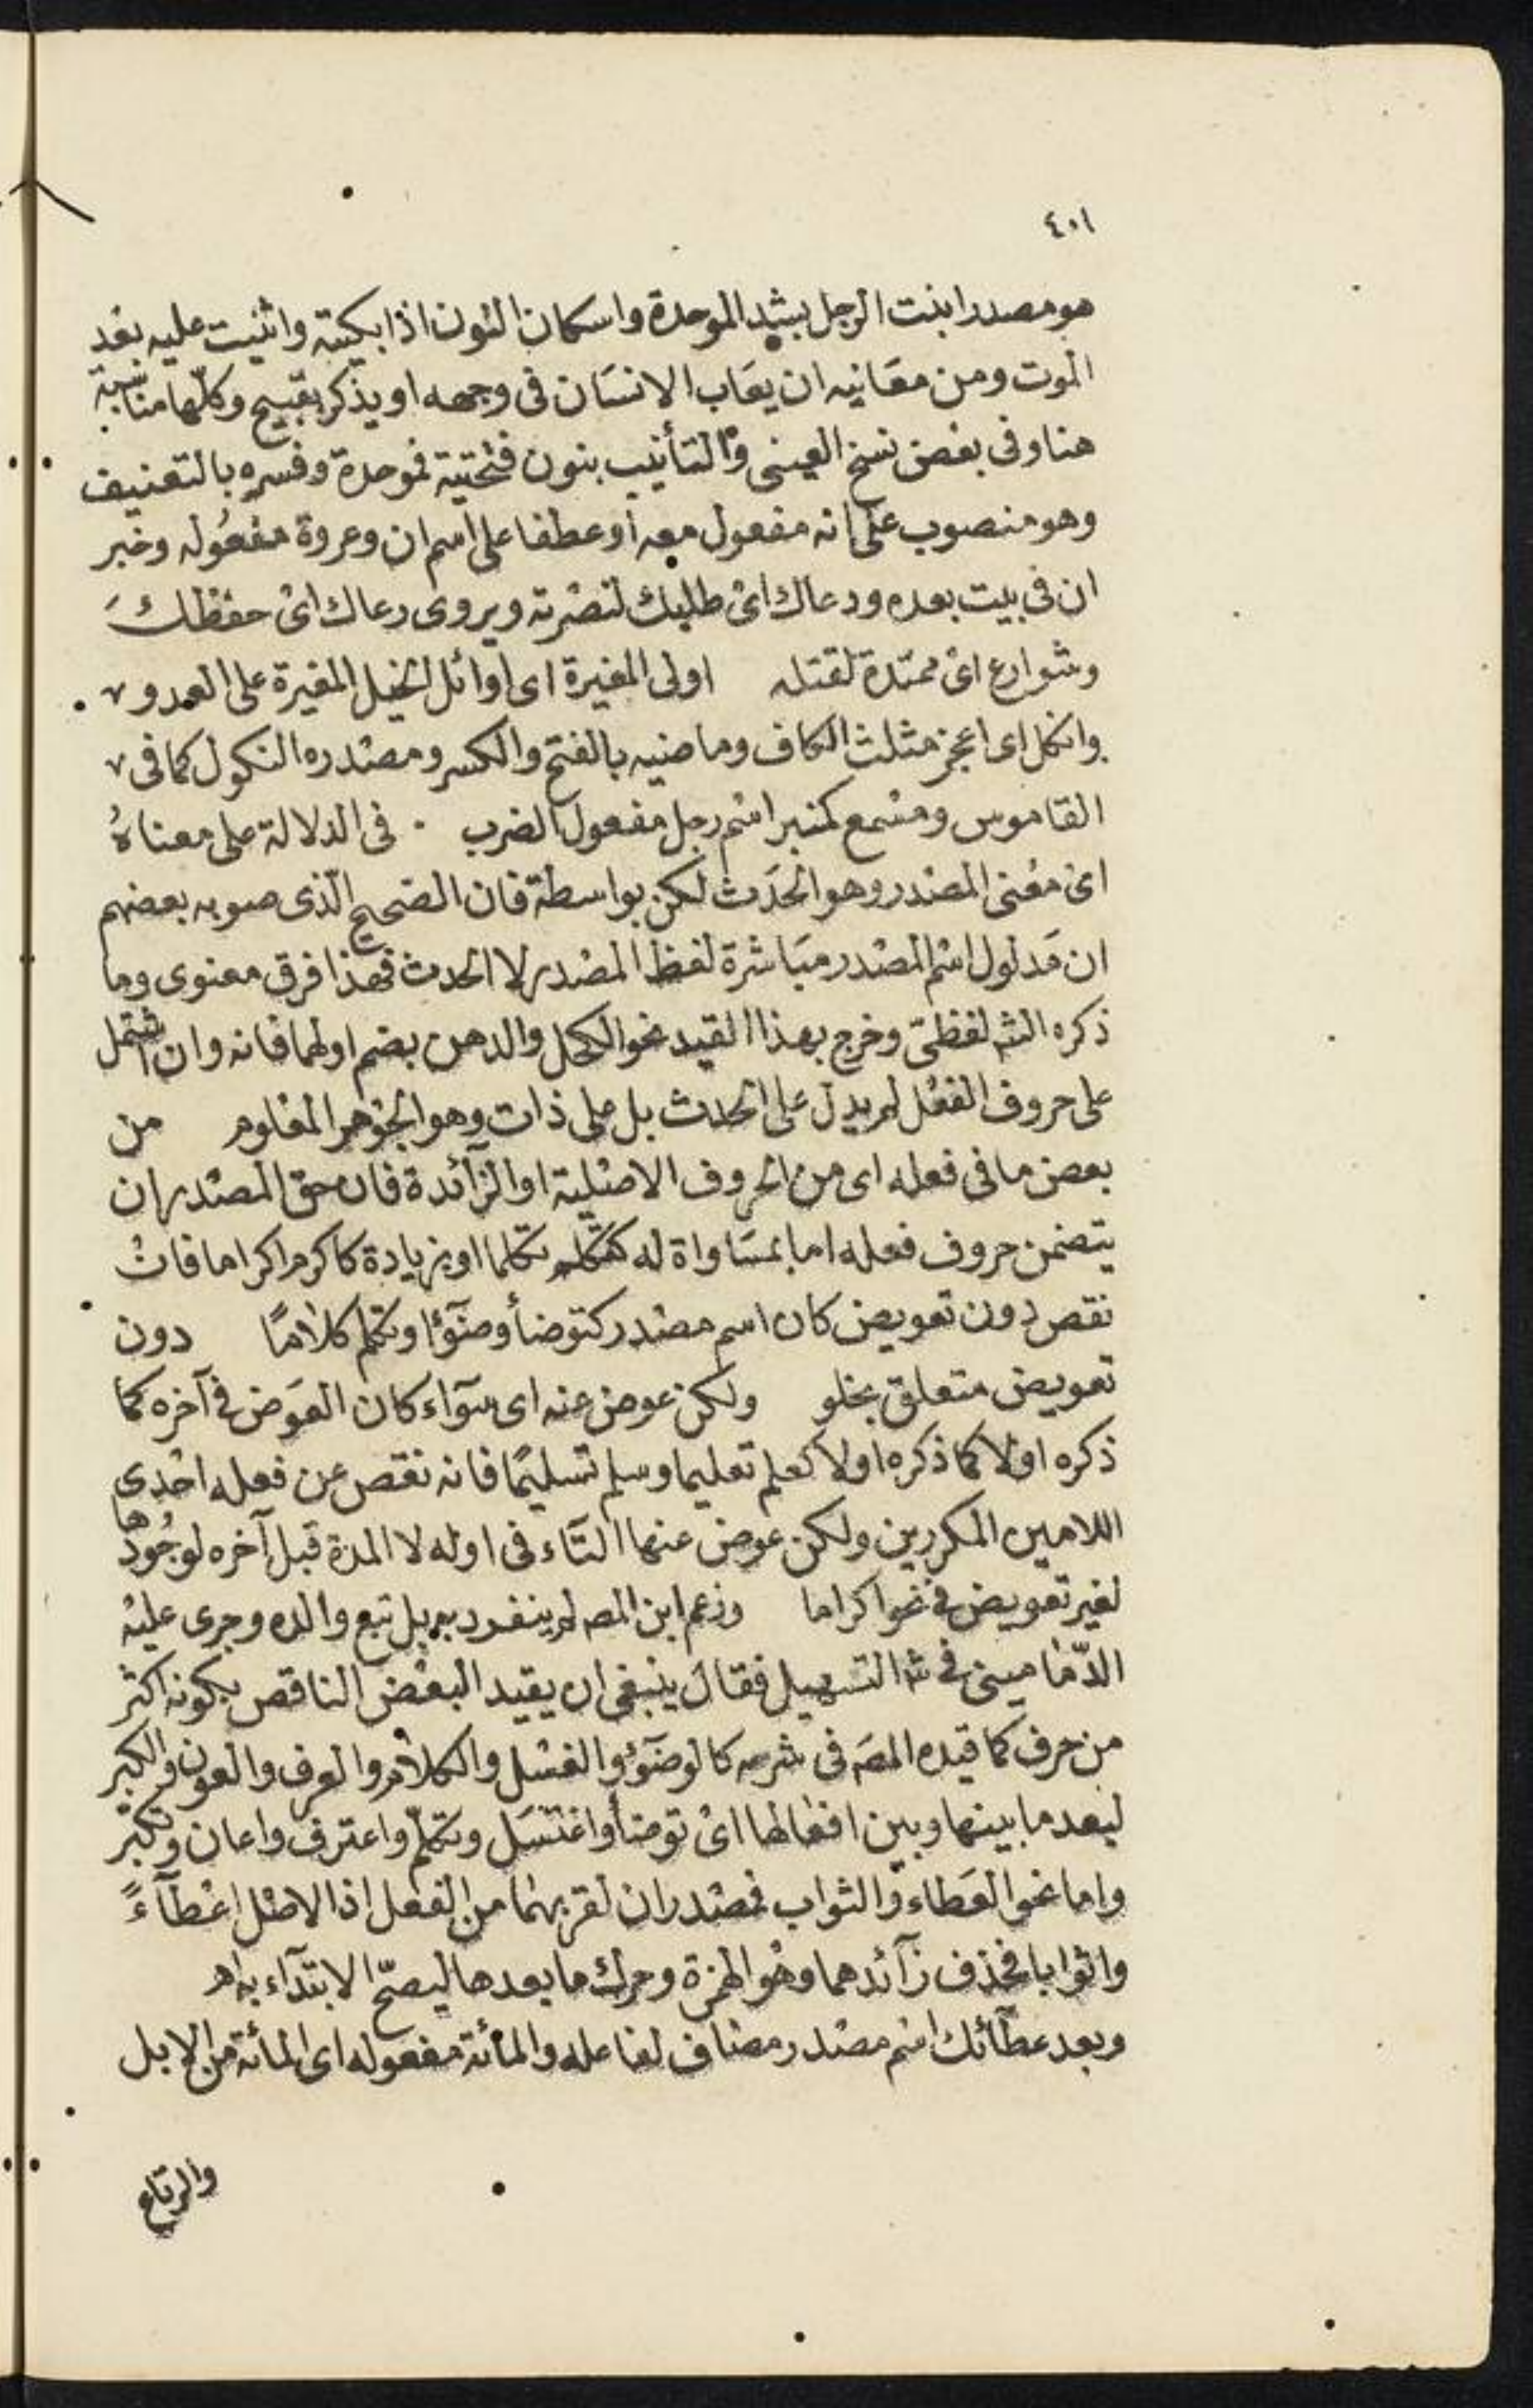 ٤٠١
هو مصدر ابنت الرجل بشد الموحدة واسكان النون اذا بكيته واثنيت عليه بعد
الموت ومن معانيه ان يعاب الانسان في وجهه او يذكر بقبيح وكلها مناسبة
هنا وفى بعض نسخ العينى والتأنيب بنون فتحتية فموحدة وفسره بالتعنيف
وهو منصوب على انه مفعول معه او عطفا على اسم ان وعروة مفعوله وخبر
ان فى بيت بعده ودعاك اى طلبك لنصرته ويروى رعاك اى حفظك
وشوارع اى ممتدة لقتله اولى المغيرة اى اوائل الخيل المغيرة على العدو
وانكل اى اعجز مثلث الكاف وماضيه بالفتح والكسر ومصدره النكول كما فى
القاموس ومسمع كمنبر اسم رجل مفعول الضرب . فى الدلالة على معناهُ
اى معنى المصدر وهو الحدث لكن بواسطة فان الصحيح الذى صوبه بعضهم
ان مدلول اسم المصدر مباشرة لفظ المصدر لا الحدث فهذا فرق معنوى وما
ذكره الشه لفظىّ وخرج بهذا القيد نحو الكحل والدهن بضم اولهما فانه وان اشتمل
على حروف الفعل لم يدل على الحدث بل على ذات وهو الجوهر المعلوم من
بعض ما فى فعله اى من الحروف الاصلية او الزآئدة فان حق المصدر ان
يتضمن حروف فعله اما بمساواة له كتكلم تكلما او بزيادة كاكرم اكراما فان
نقص دون تعويض كان اسم مصدر كتوضأ وضوٓءا وتكلم كلامًا دون
تعويض متعلق بخلو ولكن عوض عنه اى سوآء كان العوض فى آخره كما
ذكره اولا كما ذكره اولا كعلم تعليما وسلم تسليمًا فانه نقص عن فعله احدى
اللامين المكررين ولكن عوض عنها التآء فى اوله لا المدة قبل آخره لوجُودها
لغير تعويض فى نحو اكراما وزعم ابن المصه لم ينفرد به بل تبع والده وجرى عليه
الدّمامينى فى شه التسهيل فقال ينبغى ان يقيد البعض الناقص بكونه اكثر
من حرف كما قيده المصه فى شرحه كالوضوٓء والغسل والكلام والعرف والعون والكبر
لبعد ما بينها وبين افعالها اى توضأ واغتسل وتكلّم واعترف واعان وتكبّر
واما نحو العطاء والثواب فمصدران لقربهما من الفعل اذ الاصل اعطآءً
واثوابا فحذف زآئدهما وهو الهمزة وحرك ما بعدها ليصحّ الابتدآء به اهـ
وبعد عطآئك اسم مصدر مضاف لفاعله والمائة مفعوله اى المائة من الابل
والرتاع